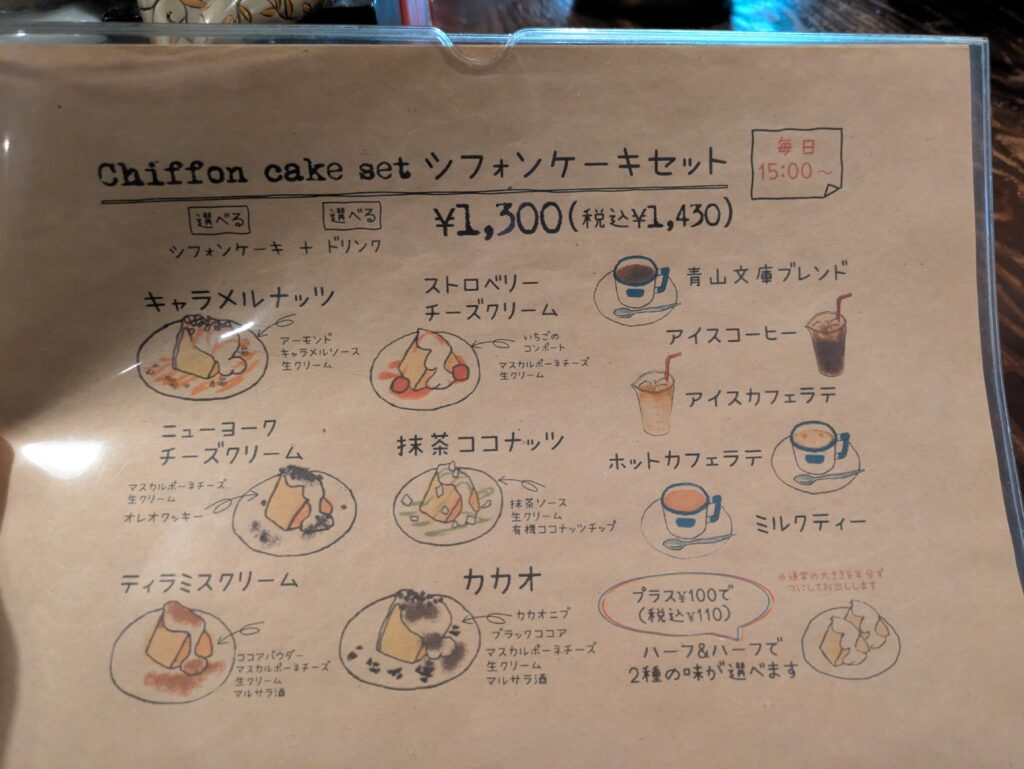 Chiffon cake set シフォンケーキセット
毎日
15:00～
選べる
選べる
シフォンケーキ + ドリンク
¥1,300(税込¥1,430)
キャラメルナッツ
アーモンド
キャラメルソース
生クリーム
ストロベリー
チーズクリーム
いちごの
コンポート
マスカルポーネチーズ
生クリーム
ニューヨーク
チーズクリーム
マスカルポーネチーズ
生クリーム
オレオクッキー
抹茶ココナッツ
抹茶ソース
生クリーム
有機ココナッツチップ
ティラミスクリーム
ココアパウダー
マスカルポーネチーズ
生クリーム
マルサラ酒
カカオ
カカオニブ
ブラックココア
マスカルポーネチーズ
生クリーム
マルサラ酒
青山文庫ブレンド
アイスコーヒー
アイスカフェラテ
ホットカフェラテ
ミルクティー
プラス¥100で
(税込¥110)
ハーフ&ハーフで
2種の味が選べます
※通常の大きさを半分ず
つにしてお出しします